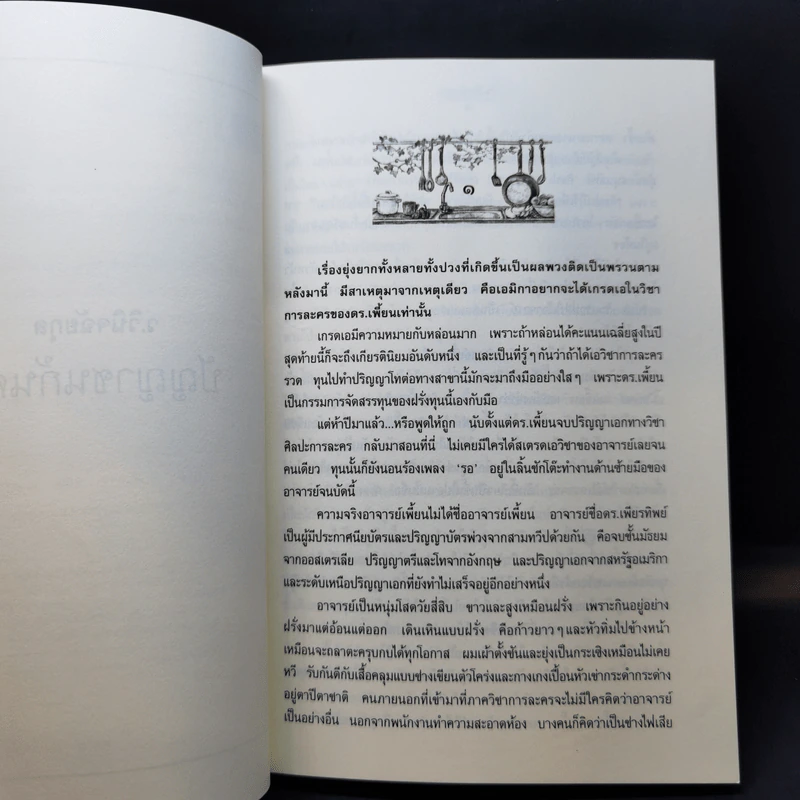 ๑
เรื่องยุ่งยากทั้งหลายทั้งปวงที่เกิดขึ้นเป็นผลพวงติดเป็นพรวนตาม
หลังมานี้ มีสาเหตุมาจากเหตุเดียว คือเอมิกาอยากจะได้เกรดเอในวิชา
การละครของดร.เพี้ยนเท่านั้น
เกรดเอมีความหมายกับหล่อนมาก เพราะถ้าหล่อนได้คะแนนเฉลี่ยสูงในปี
สุดท้ายนี้ก็จะถึงเกียรตินิยมอันดับหนึ่ง และเป็นที่รู้ๆ กันว่าถ้าได้เอวิชาการละคร
รวด ทุนไปทำปริญญาโทต่อทางสาขานี้มักจะมาถึงมืออย่างใสๆ เพราะดร.เพี้ยน
เป็นกรรมการจัดสรรทุนของฝรั่งทุนนี้เองกับมือ
แต่ห้าปีมาแล้ว...หรือพูดให้ถูก นับตั้งแต่ดร.เพี้ยนจบปริญญาเอกทางวิชา
ศิลปะการละคร กลับมาสอนที่นี่ ไม่เคยมีใครได้สเตรดเอวิชาของอาจารย์เลยจน
คนเดียว ทุนนั้นก็ยังนอนร้องเพลง ‘รอ’ อยู่ในลิ้นชักโต๊ะทำงานด้านซ้ายมือของ
อาจารย์จนบัดนี้
ความจริงอาจารย์เพี้ยนไม่ได้ชื่ออาจารย์เพี้ยน อาจารย์ชื่อดร.เพียรทิพย์
เป็นผู้มีประกาศนียบัตรและปริญญาบัตรพ่วงจากสามทวีปด้วยกัน คือจบชั้นมัธยม
จากออสเตรเลีย ปริญญาตรีและโทจากอังกฤษ และปริญญาเอกจากสหรัฐอเมริกา
และระดับเหนือปริญญาเอกที่ยังทำไม่เสร็จอยู่อีกอย่างหนึ่ง
อาจารย์เป็นหนุ่มโสดวัยสี่สิบ ขาวและสูงเหมือนฝรั่ง เพราะกินอยู่อย่าง
ฝรั่งมาแต่อ้อนแต่ออก เดินเหินแบบฝรั่ง คือก้าวยาวๆ และหัวทิ่มไปข้างหน้า
เหมือนจะถลาตะครุบกบได้ทุกโอกาส ผมเผ้าตั้งชันและยุ่งเป็นกระเซิงเหมือนไม่เคย
หวี รับกันดีกับเสื้อคลุมแบบช่างเขียนตัวโคร่งและกางเกงเปื้อนหัวเข่ากระดำกระด่าง
อยู่ตาปีตาชาติ คนภายนอกที่เข้ามาที่ภาควิชาการละครจะไม่มีใครคิดว่าอาจารย์
เป็นอย่างอื่น นอกจากพนักงานทำความสะอาดห้อง บางคนก็คิดว่าเป็นช่างไฟเสีย